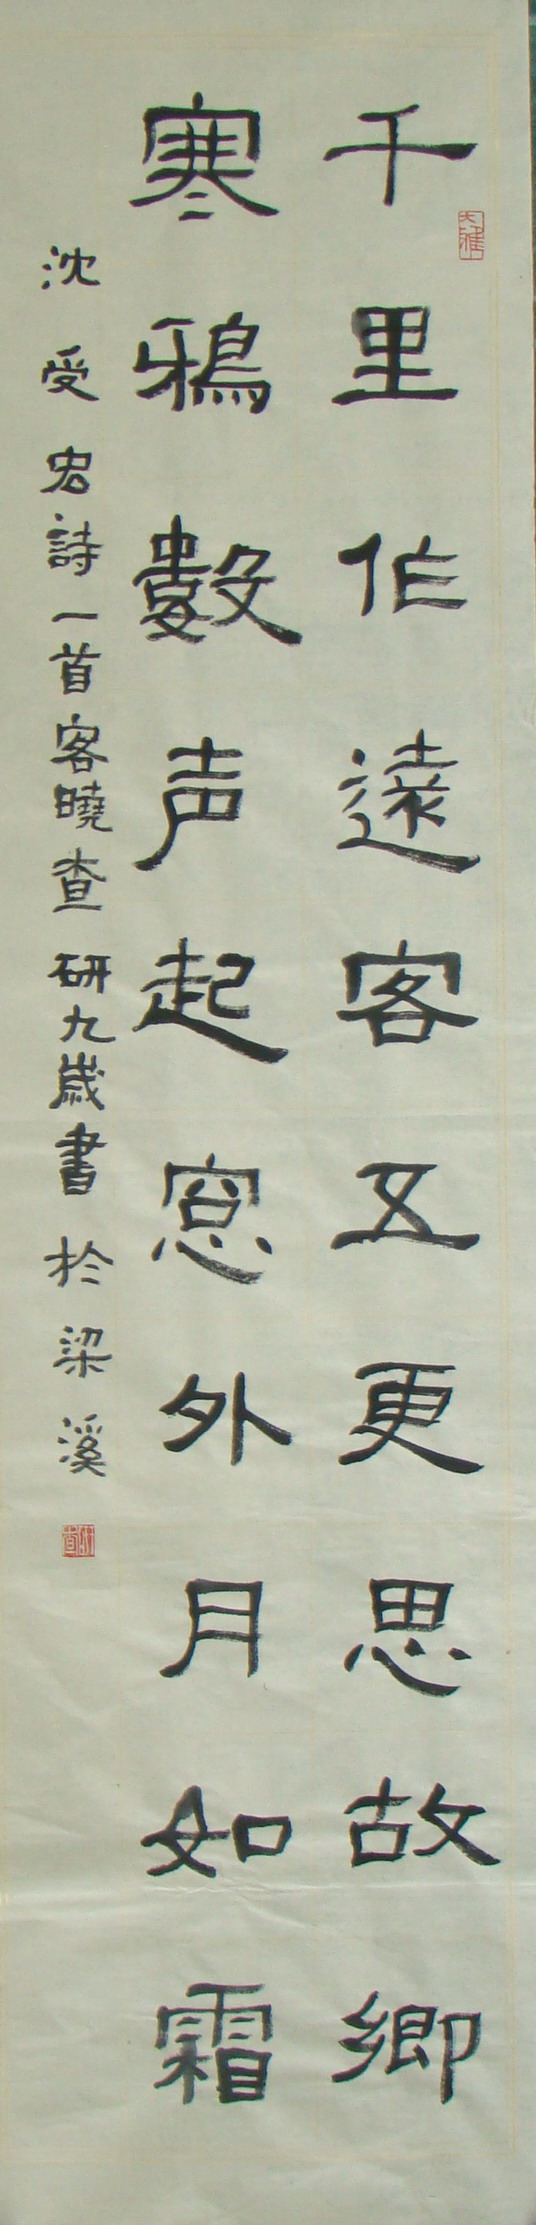 千里作遠客五更思故鄉
寒鴉數声起窓外月如霜
沈受宏詩一首客曉查研九歲書於梁溪